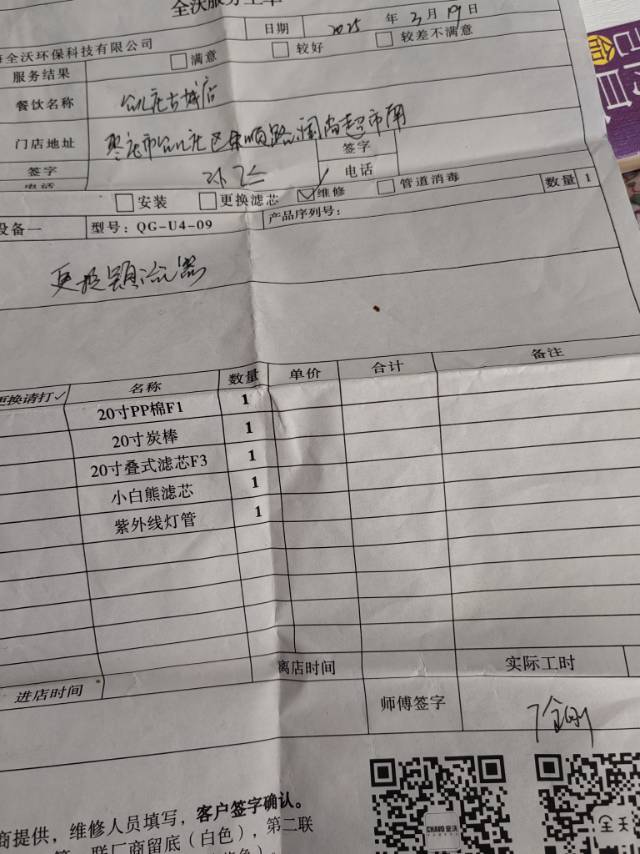 全沃服务工单
日期 2025 年 3 月 19 日
全沃环保科技有限公司
服务结果 满意 较好 较差不满意
餐饮名称 台儿庄古城店
门店地址 枣庄市台儿庄区 顺路 超市南
签字 签字
电话 电话
安装 更换滤芯 维修 管道消毒 数量 1
设备一 型号：QG-U4-09 产品序列号：
更换
更换请打✓ 名称 数量 单价 合计 备注
20寸PP棉F1 1
20寸炭棒 1
20寸叠式滤芯F3 1
小白熊滤芯 1
紫外线灯管 1
进店时间 离店时间 实际工时
师傅签字
商提供，维修人员填写，客户签字确认。
联厂商留底（白色），第二联